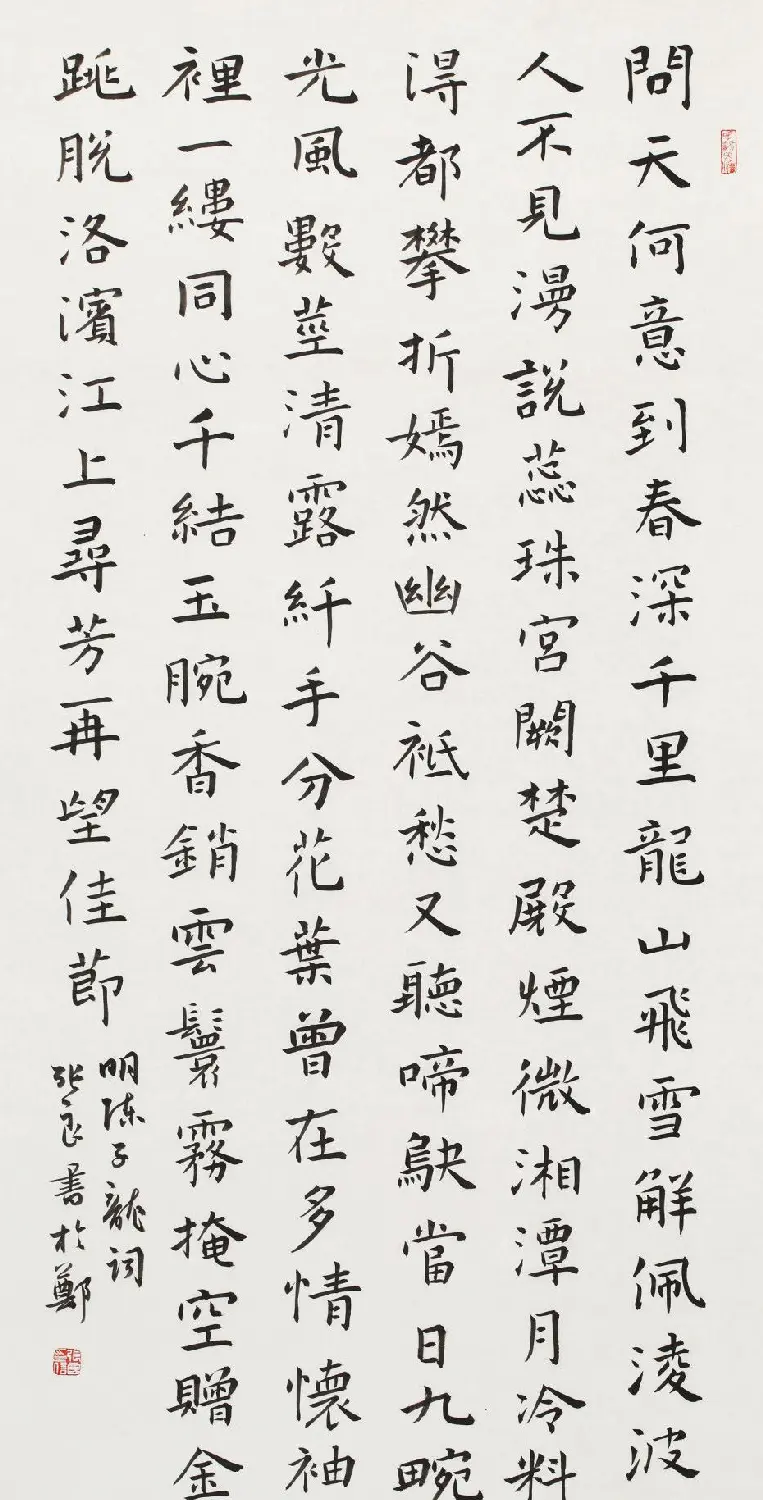 問天何意到春深千里龍山飛雪解佩淩波
人不見漫説蕊珠宮闕楚殿煙微湘潭月冷料
得都攀折嫣然幽谷祗愁又聽啼鴃當日九畹
光風數莖清露纤手分花葉曾在多情懷袖
裡一縷同心千結玉腕香銷雲鬟霧掩空贈金
跳脱洛濱江上尋芳再望佳節
明陈子龍词
张良書於鄭